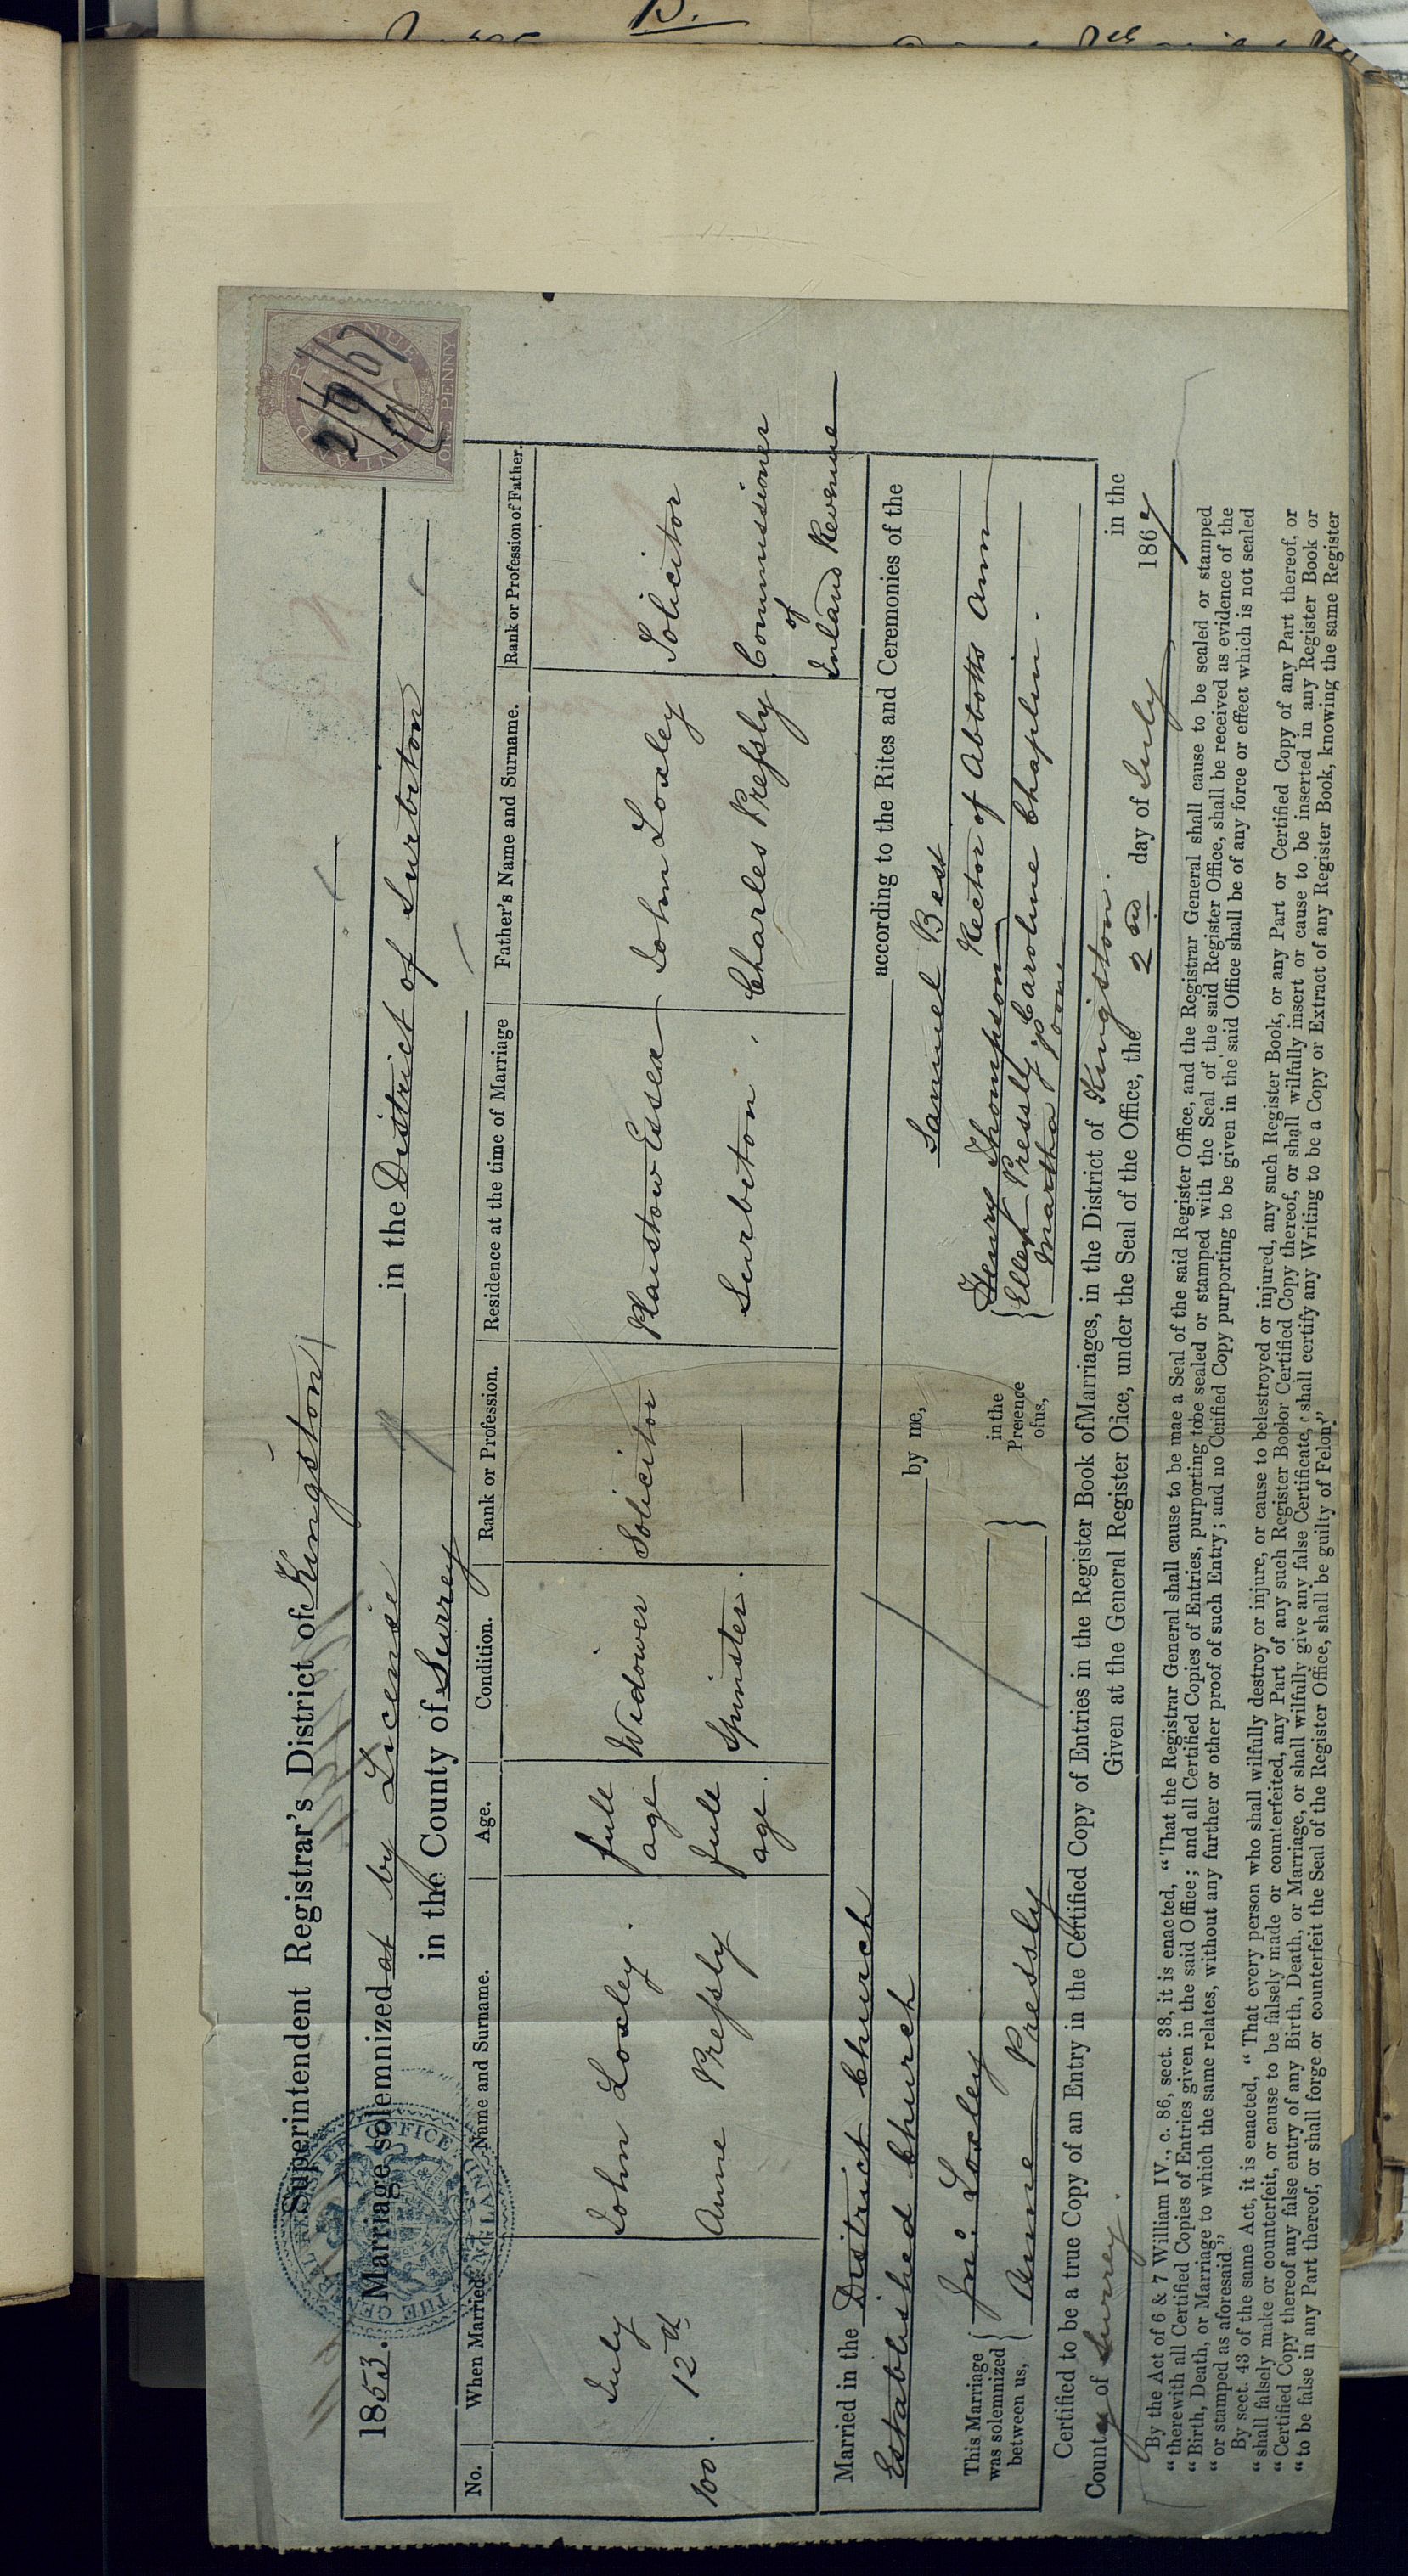 Superintendent Registrar's District of Kingston
1853. Marriage solemnized at by License in the District of Surbiton
in the County of Surrey
No. When Married. Name and Surname. Age. Condition. Rank or Profession. Residence at the time of Marriage Father's Name and Surname. Rank or Profession of Father.
July John Loxley. full age Widower Solicitor Plaistow Essex John Loxley Solicitor
100. 12th Anne Preſsly full age. Spinster. — Surbiton. Charles Preſsly Commissioner of Inland Revenue
Married in the District Church according to the Rites and Ceremonies of the
Established Church by me, Samuel Best
Rector of Abbotts Ann
This Marriage was solemnized between us, Jno. Loxley Anne Pressly
in the Presence of us, Henry Thompson Ellen Pressly. Caroline Chaplin. Martha Jane
Certified to be a true Copy of an Entry in the Certified Copy of Entries in the Register Book of Marriages, in the District of Kingston. in the
County of Surrey. Given at the General Register Office, under the Seal of the Office, the 2nd day of July 1867
By the Act of 6 & 7 William IV., c. 86, sect. 38, it is enacted, "That the Registrar General shall cause to be made a Seal of the said Register Office, and the Registrar General shall cause to be sealed or stamped
"therewith all Certified Copies of Entries given in the said Office; and all Certified Copies of Entries, purporting to be sealed or stamped with the Seal of the said Register Office, shall be received as evidence of the
"Birth, Death, or Marriage to which the same relates, without any further or other proof of such Entry; and no Certified Copy purporting to be given in the said Office shall be of any force or effect which is not sealed
"or stamped as aforesaid."
By sect. 43 of the same Act, it is enacted, "That every person who shall wilfully destroy or injure, or cause to be destroyed or injured, any such Register Book, or any Part or Certified Copy of any Part thereof, or
"shall falsely make or counterfeit, or cause to be falsely made or counterfeited, any Part of any such Register Book or Certified Copy thereof, or shall wilfully insert or cause to be inserted in any Register Book or
"Certified Copy thereof any false entry of any Birth, Death, or Marriage, or shall wilfully give any false Certificate, or shall certify any Writing to be a Copy or Extract of any Register Book, knowing the same Register
"to be false in any Part thereof, or shall forge or counterfeit the Seal of the Register Office, shall be guilty of Felony."
THE GENERAL REGISTER OFFICE ENGLAND
INLAND REVENUE
ONE PENNY
2/9/67